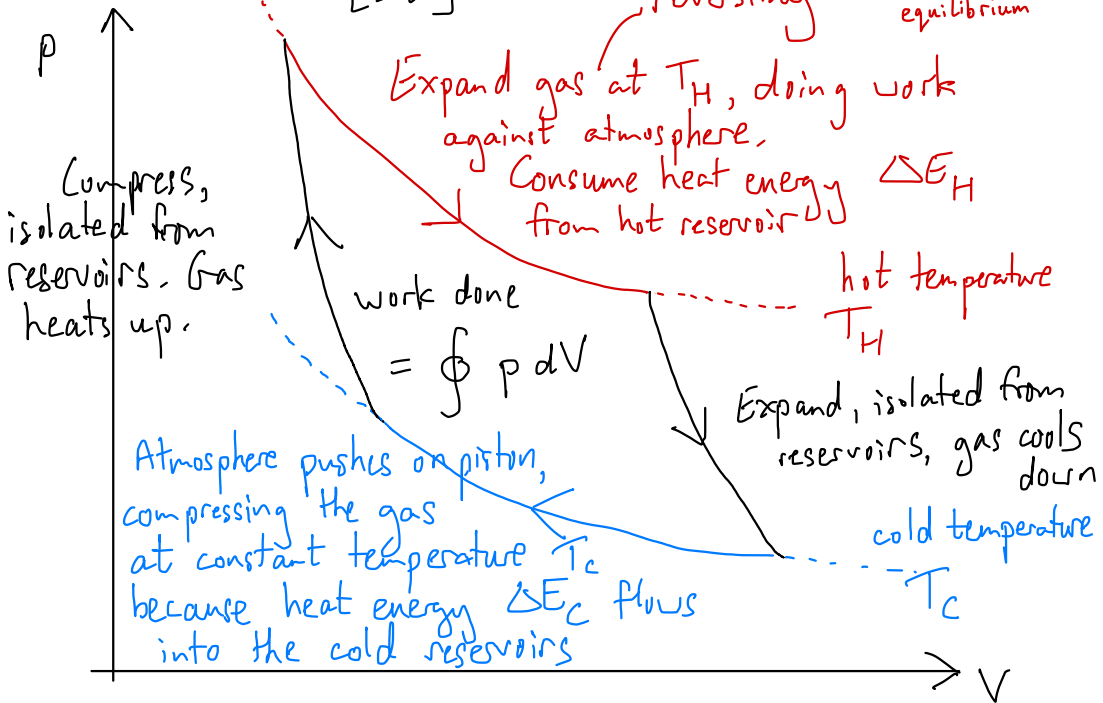 equilibrium
p
Expand gas at T_H, doing work
against atmosphere.
Consume heat energy ΔE_H
from hot reservoir
Compress,
isolated from
reservoirs. Gas
heats up.
work done
= ∮ p dV
hot temperature
T_H
Expand, isolated from
reservoirs, gas cools
down
Atmosphere pushes on piston,
compressing the gas
at constant temperature T_c
because heat energy ΔE_C flows
into the cold reservoirs
cold temperature
T_C
V